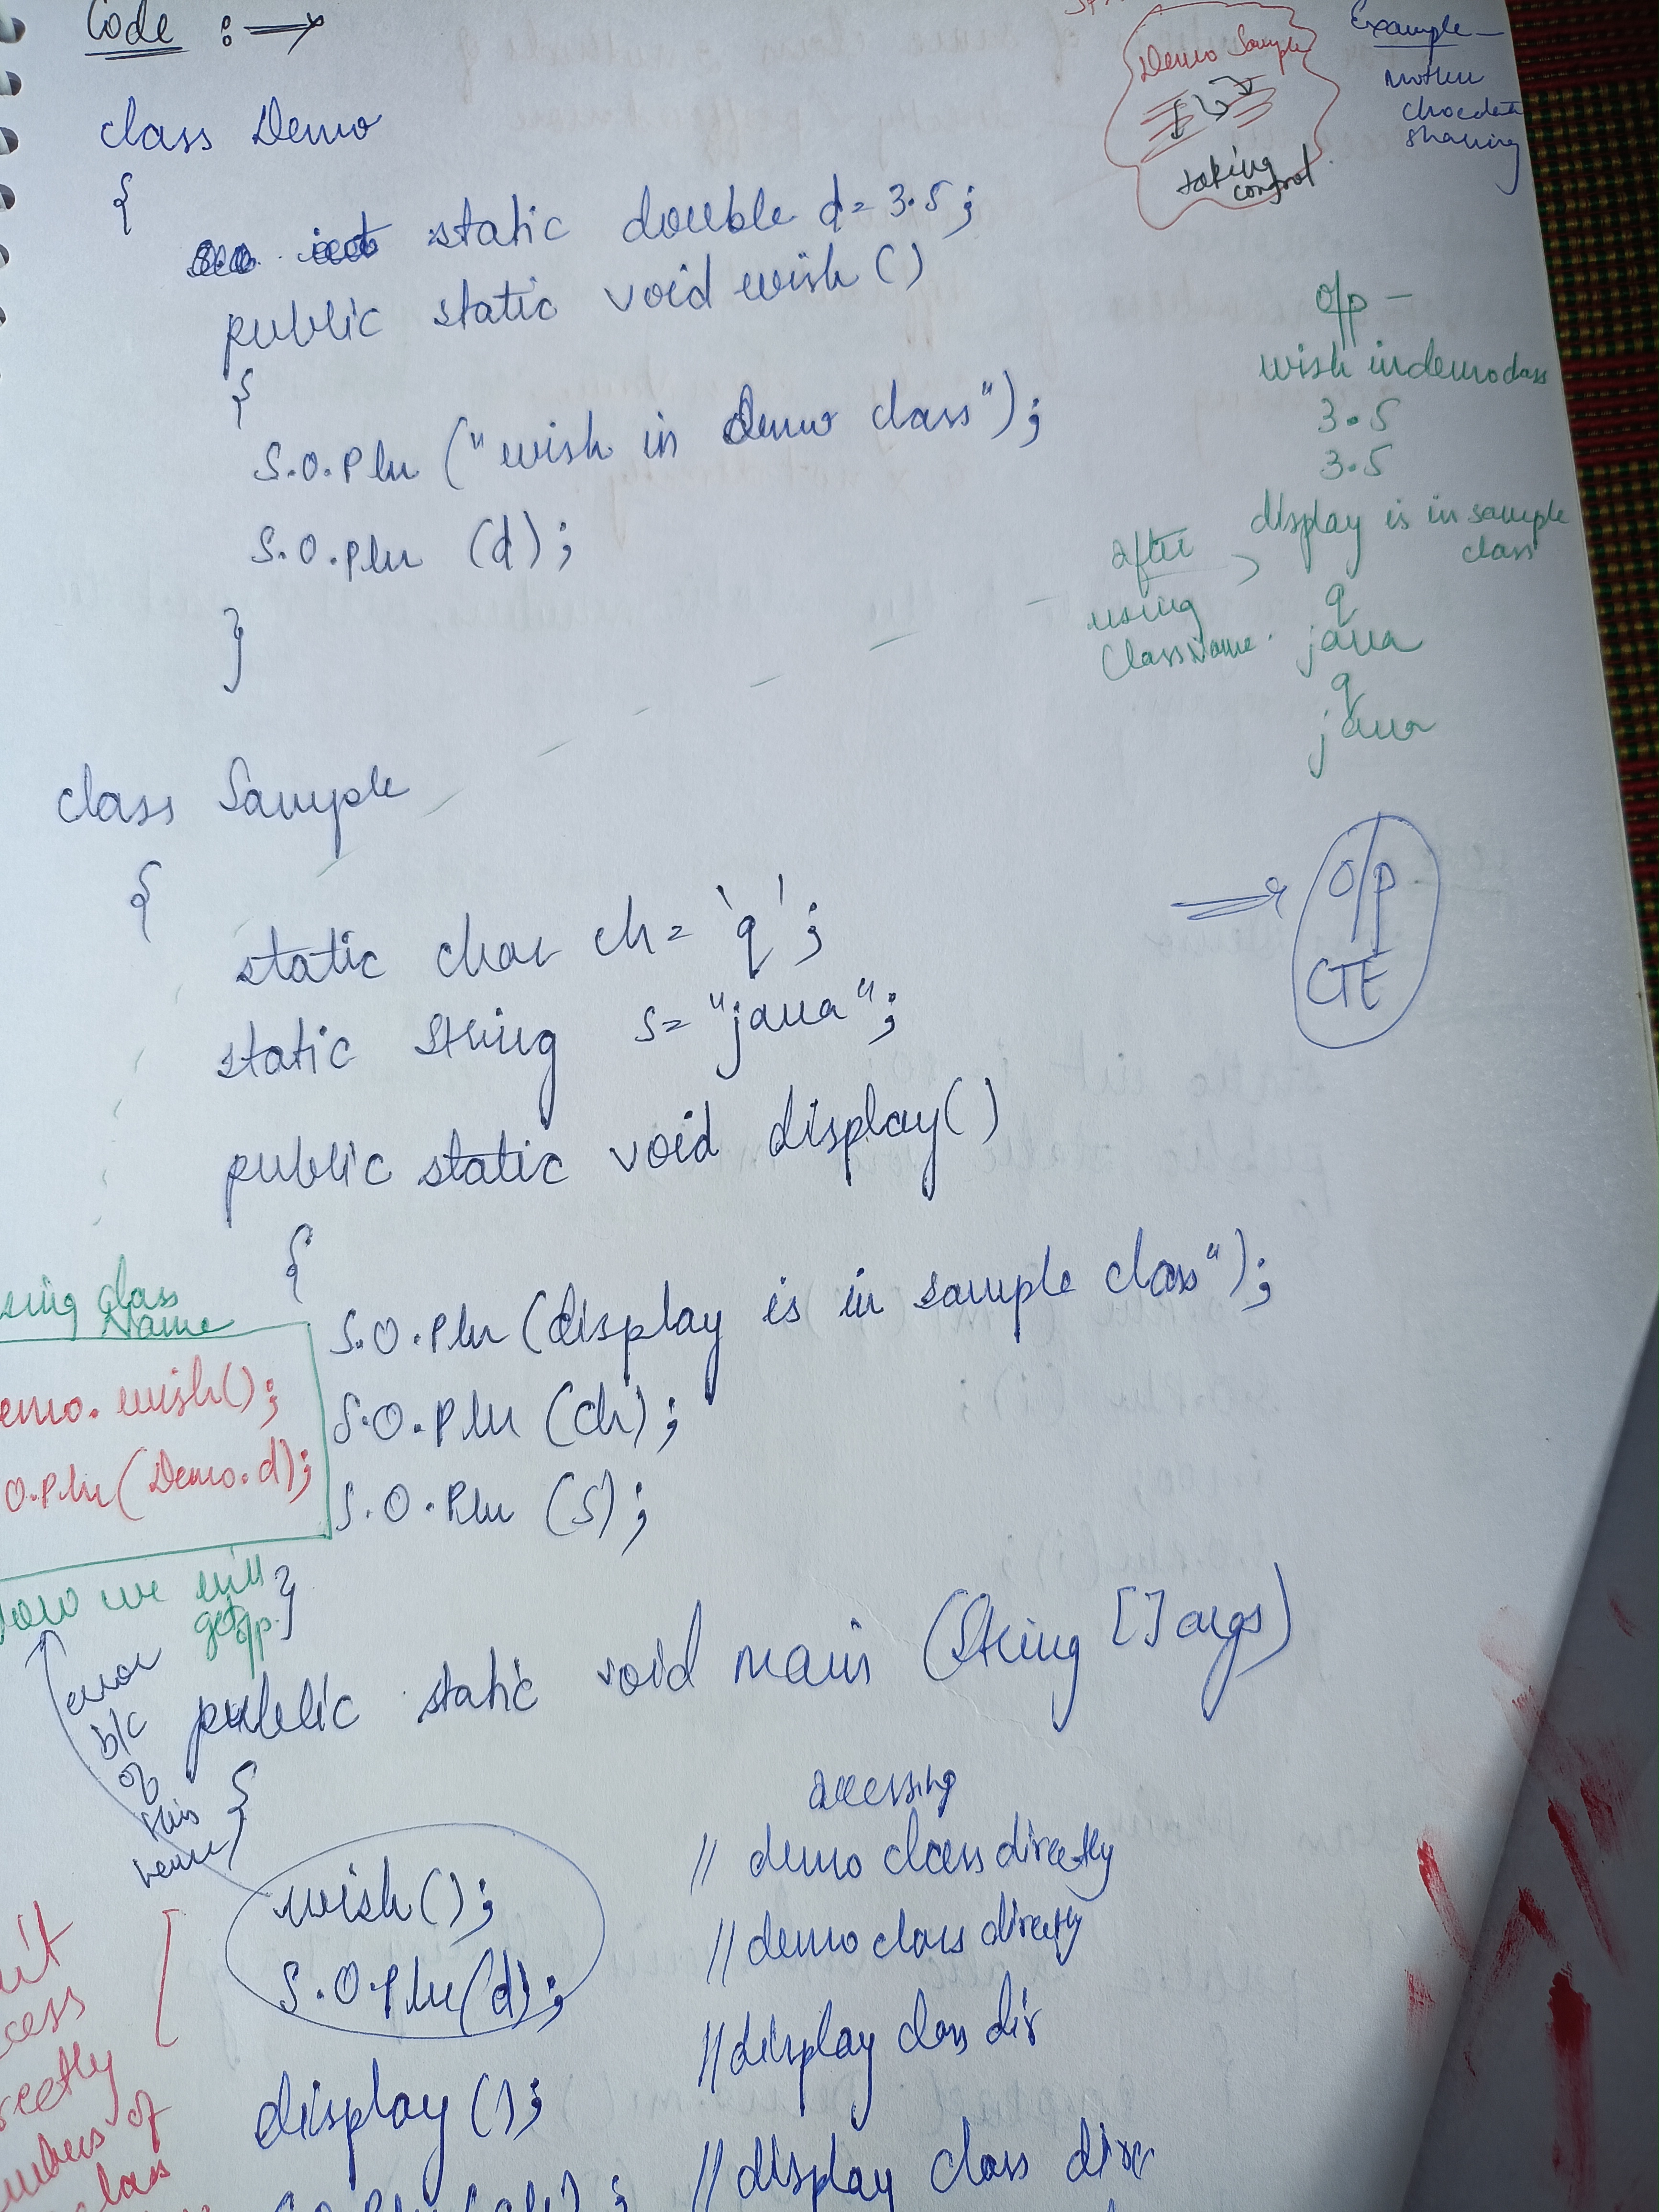 Code :→
class Demo
{
static double d = 3.5;
public static void wish ()
{
S.O.Pln ("wish in Demo class");
S.O.Pln (d);
}
class Sample
{
static char ch = 'q';
static String s = "java";
public static void display()
{
S.O.Pln (display is in sample class");
S.O.Pln (ch);
S.O.Pln (s);
}
public static void main (String []args)
{
wish();
S.O.Pln(d);
display ();
accessing
// demo class directly
// demo class directly
// display class dir
// display class dire
Demo Sample
taking
control
Example -
mother
chocolate
sharing
o/p -
wish in demo class
3.5
3.5
display is in sample
class
q
java
q
java
after
using
ClassName.
⇒ O/P
CTE
class
Name
wish();
O.Pln(Demo.d);
we will
get
o/p.
error
b/c
of
this
of
class